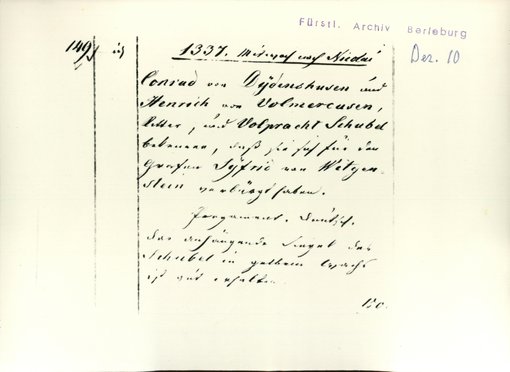 Fürstl. Archiv Berleburg
Dez. 10
1337. Mittwoch nach Nicolai
Conrad von Dydenshusen und
Henrich von Volmercusen,
Ritter, und Volpracht Schubel
bekennen, daß sie sich für den
Grafen Syfrid von Witgen-
stein verbürgt haben.
Pergament. Deutsch.
Das anhängende Siegel des
Schubel in gelbem Wachs
ist gut erhalten.